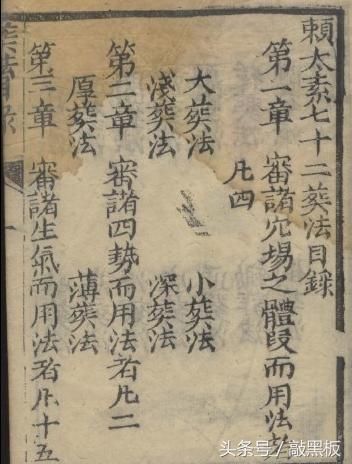 賴太素七十二葬法目錄
第一章 審諸穴塲之體段而用法者
凡四
大葬法 小葬法
淺葬法 深葬法
第二章 審諸四勢而用法者凡二
厚葬法 薄葬法
第三章 審諸生氣而用法者凡十五
葬法目錄
一
头条号 / 敲黑板